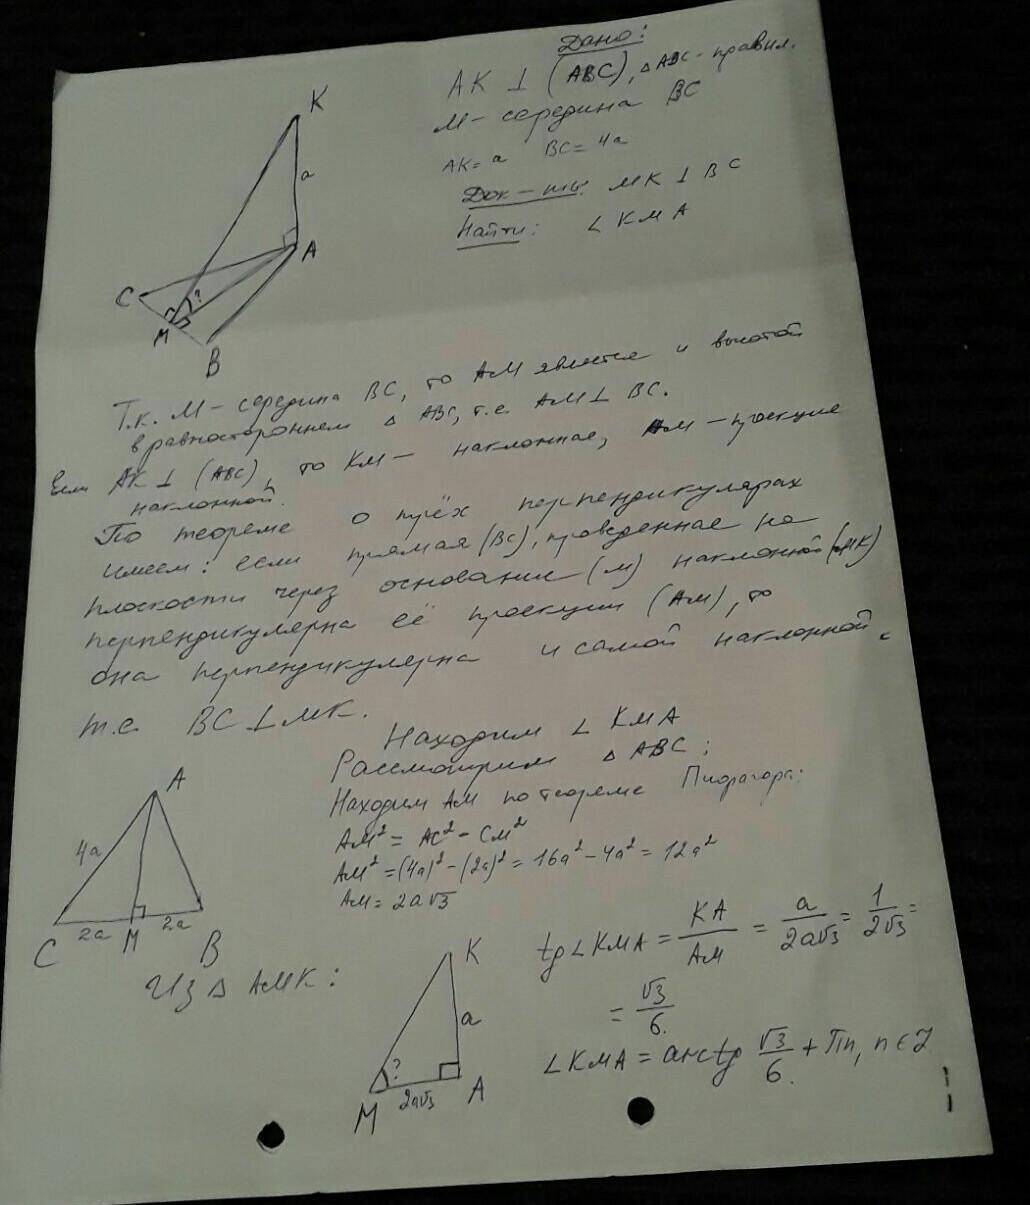 Дано:
AK ⊥ (ABC), △ABC - правил.
M - середина BC
AK = a BC = 4a
Док-ть: MK ⊥ BC
Найти: ∠KMA
K
a
A
C
?
M
B
Т.к. M - середина BC, то AM является и высотой
в равностороннем △ ABC, т.е. AM ⊥ BC.
Если AK ⊥ (ABC), то KM - наклонная, AM - проекция
наклонной.
По теореме о трёх перпендикулярах
имеем: если прямая (BC), проведенная на
плоскости через основание (M) наклонной (MK)
перпендикулярна её проекции (AM), то
она перпендикулярна и самой наклонной.
т.е. BC ⊥ MK.
Находим ∠ KMA
Рассмотрим △ ABC:
Находим AM по теореме Пифагора:
AM² = AC² - CM²
AM² = (4a)² - (2a)² = 16a² - 4a² = 12a²
AM = 2a√3
A
4a
C 2a M 2a B
Из △ AMK:
K
a
?
M 2a√3 A
tg∠KMA = KA/AM = a/2a√3 = 1/2√3 =
= √3/6.
∠KMA = arctg √3/6. + Πn, n ∈ Z